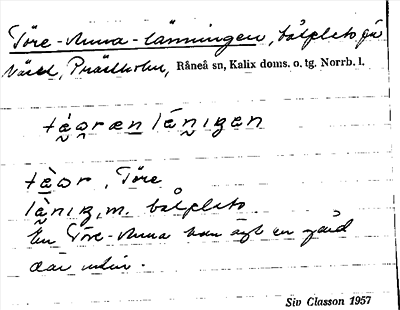 Töre-Anna-länningen, båtplats på
Västl. Prästholm, Råneå sn, Kalix doms. o. tg. Norrb. l.
tà̤ɷræn lá̤niꞑen
tɛ̀ɷr, Töre
là̤niꞑ, m. båtplats
En Töre-Anna har ägt en gård
där
Siv Classon 1957